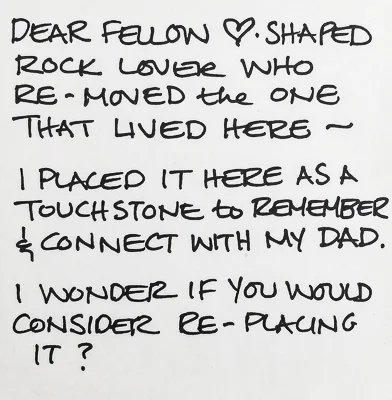 DEAR FELLOW ♡-SHAPED
ROCK LOVER WHO
RE-MOVED the ONE
THAT LIVED HERE ~
I PLACED IT HERE AS A
TOUCHSTONE to REMEMBER
& CONNECT WITH MY DAD.
I WONDER IF YOU WOULD
CONSIDER RE-PLACING
IT?